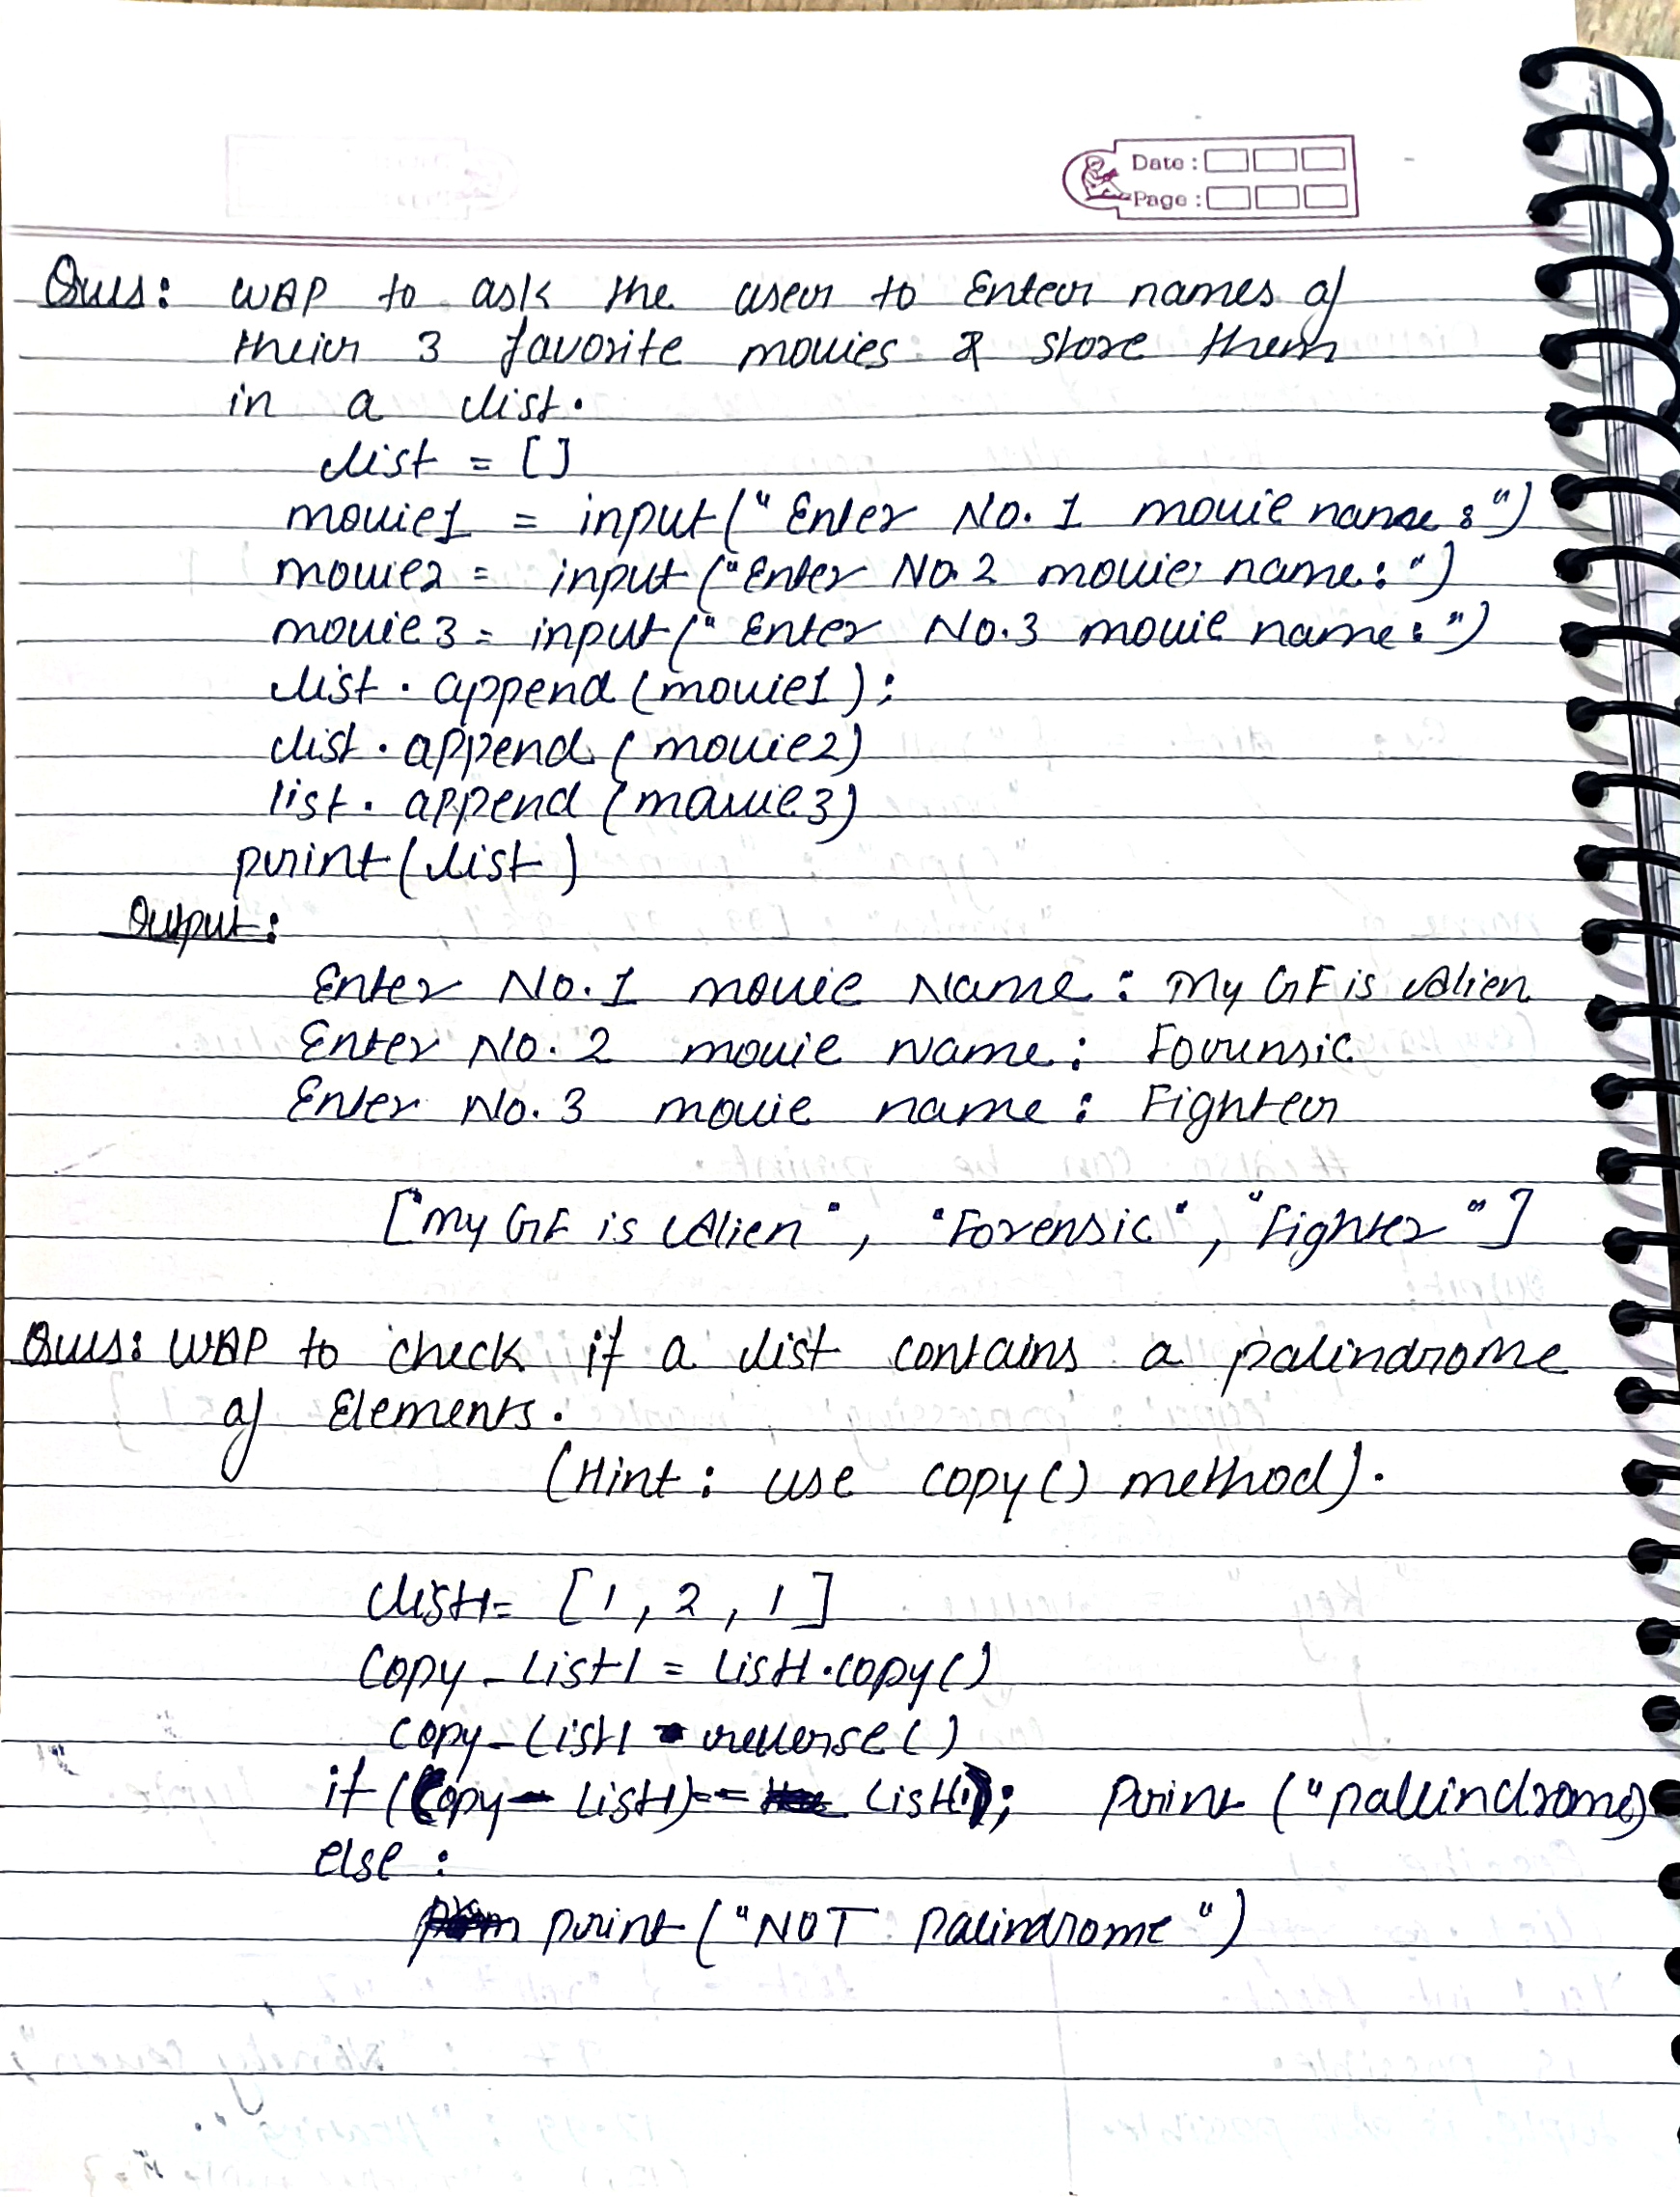 Date :
Page :
Ques: WAP to ask the user to Enter names of
their 3 favorite movies & store them
in a list.
list = []
movie1 = input(" Enter No. 1 movie name :")
movie2 = input ("Enter No. 2 movie name: ")
movie3 = input (" Enter No.3 movie name: ")
list . append (movie1);
list . append (movie2)
list . append (movie3)
print(list)
Output:
Enter No. 1 movie Name : My GF is Alien
Enter No. 2 movie Name : Forensic
Enter No. 3 movie name : Fighter
["My GF is Alien", "Forensic", "Fighter"]
Ques: WAP to check if a list contains a palindrome
of Elements.
(Hint : use copy() method).
list1= [1, 2, 1]
Copy_List1 = List1.copy()
copy_List1 . reverse()
if ((Copy_List1)== List1); Print ("pallindrome)
else :
print ("NOT Palindrome")